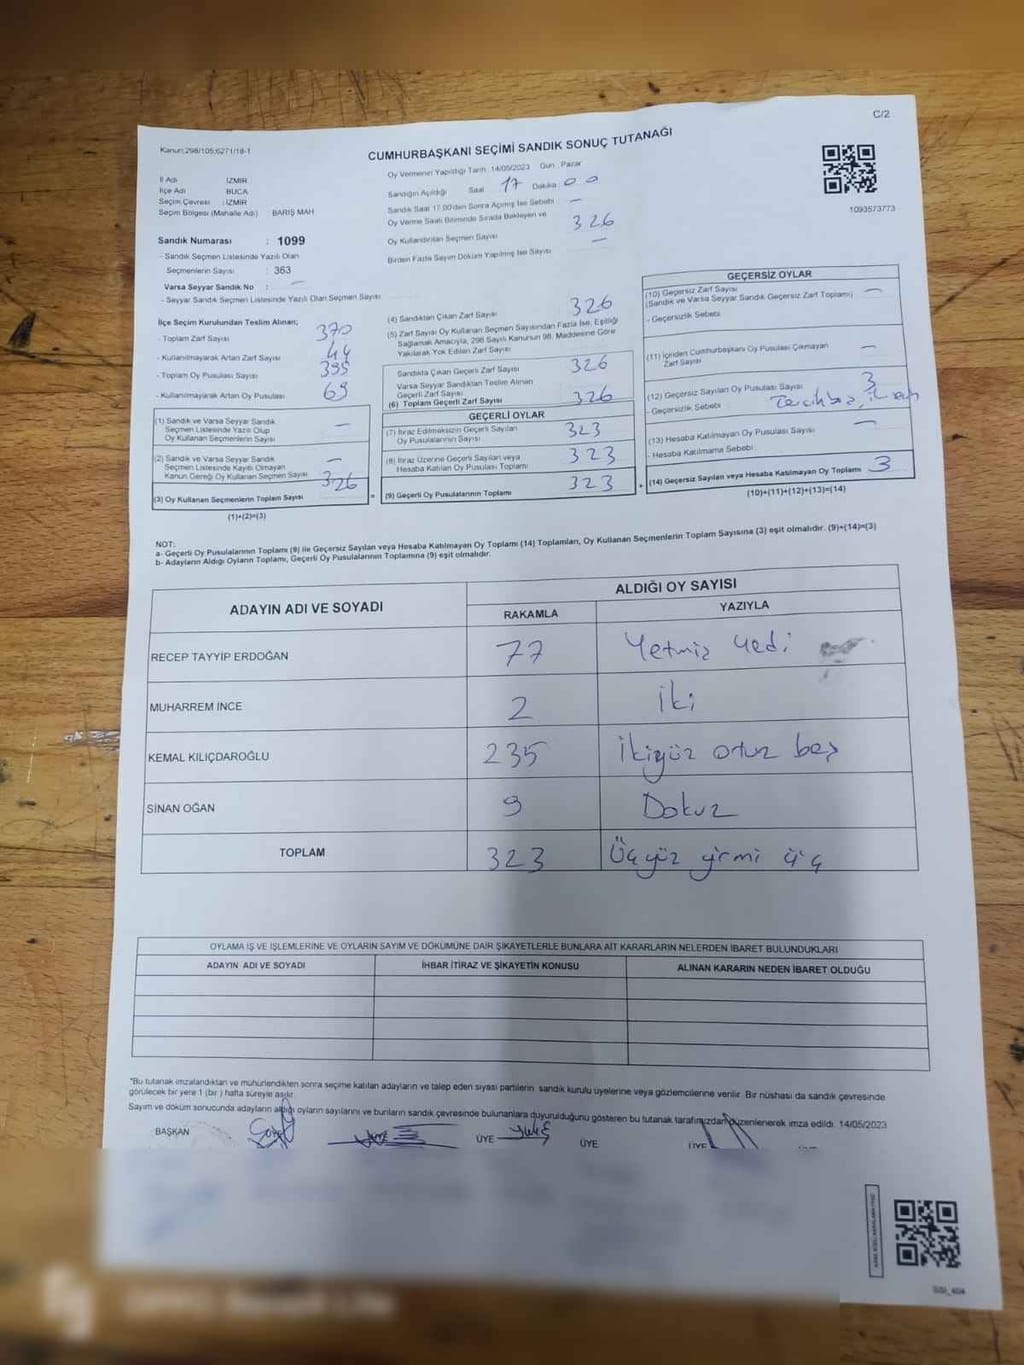 C/2
Kanun;298/105;6271/18-1
CUMHURBAŞKANI SEÇİMİ SANDIK SONUÇ TUTANAĞI
İl Adı İZMİR
İlçe Adı BUCA
Seçim Çevresi : İZMİR
Seçim Bölgesi (Mahalle Adı) BARIŞ MAH
Sandık Numarası : 1099
- Sandık Seçmen Listesinde Yazılı Olan
Seçmenlerin Sayısı : 363
Varsa Seyyar Sandık No : —
- Seyyar Sandık Seçmen Listesinde Yazılı Olan Seçmen Sayısı
İlçe Seçim Kurulundan Teslim Alınan;
- Toplam Zarf Sayısı 370
- Kullanılmayarak Artan Zarf Sayısı 44
- Toplam Oy Pusulası Sayısı 395
- Kullanılmayarak Artan Oy Pusulası 69
(1) Sandık ve Varsa Seyyar Sandık
Seçmen Listesinde Yazılı Olup
Oy Kullanan Seçmenlerin Sayısı —
(2) Sandık ve Varsa Seyyar Sandık
Seçmen Listesinde Kayıtlı Olmayan
Kanun Gereği Oy Kullanan Seçmen Sayısı —
(3) Oy Kullanan Seçmenlerin Toplam Sayısı 326
(1)+(2)=(3)
Oy Vermenin Yapıldığı Tarih 14/05/2023 Gün Pazar
Sandığın Açıldığı Saat 17 Dakika : 00
Sandık Saat 17.00'den Sonra Açılmış İse Sebebi —
Oy Verme Saati Bitiminde Sırada Bekleyen ve
Oy Kullandırılan Seçmen Sayısı 326
Birden Fazla Sayım Döküm Yapılmış İse Sayısı —
(4) Sandıktan Çıkan Zarf Sayısı 326
(5) Zarf Sayısı Oy Kullanan Seçmen Sayısından Fazla İse, Eşitliği
Sağlamak Amacıyla, 298 Sayılı Kanunun 98. Maddesine Göre
Yakılarak Yok Edilen Zarf Sayısı
Sandıkta Çıkan Geçerli Zarf Sayısı 326
Varsa Seyyar Sandıktan Teslim Alınan
Geçerli Zarf Sayısı
(6) Toplam Geçerli Zarf Sayısı 326
GEÇERLİ OYLAR
(7) İtiraz Edilmeksizin Geçerli Sayılan
Oy Pusulalarının Sayısı 323
(8) İtiraz Üzerine Geçerli Sayılan veya
Hesaba Katılan Oy Pusulası Toplamı 323
= (9) Geçerli Oy Pusulalarının Toplamı 323
1093573773
GEÇERSİZ OYLAR
(10) Geçersiz Zarf Sayısı
(Sandık ve Varsa Seyyar Sandık Geçersiz Zarf Toplamı) —
- Geçersizlik Sebebi
(11) İçinden Cumhurbaşkanı Oy Pusulası Çıkmayan
Zarf Sayısı —
(12) Geçersiz Sayılan Oy Pusulası Sayısı 3
- Geçersizlik Sebebi
(13) Hesaba Katılmayan Oy Pusulası Sayısı —
- Hesaba Katılmama Sebebi
+ (14) Geçersiz Sayılan veya Hesaba Katılmayan Oy Toplamı 3
(10)+(11)+(12)+(13)=(14)
NOT:
a- Geçerli Oy Pusulalarının Toplamı (9) ile Geçersiz Sayılan veya Hesaba Katılmayan Oy Toplamı (14) Toplamları, Oy Kullanan Seçmenlerin Toplam Sayısına (3) eşit olmalıdır. (9)+(14)=(3)
b- Adayların Aldığı Oyların Toplamı, Geçerli Oy Pusulalarının Toplamına (9) eşit olmalıdır.
ADAYIN ADI VE SOYADI ALDIĞI OY SAYISI
RAKAMLA YAZIYLA
RECEP TAYYİP ERDOĞAN 77 Yetmiş yedi
MUHARREM İNCE 2 İki
KEMAL KILIÇDAROĞLU 235 İkiyüz otuz beş
SİNAN OĞAN 9 Dokuz
TOPLAM 323 Üçyüz yirmi üç
OYLAMA İŞ VE İŞLEMLERİNE VE OYLARIN SAYIM VE DÖKÜMÜNE DAİR ŞİKAYETLERLE BUNLARA AİT KARARLARIN NELERDEN İBARET BULUNDUKLARI
ADAYIN ADI VE SOYADI İHBAR İTİRAZ VE ŞİKAYETİN KONUSU ALINAN KARARIN NEDEN İBARET OLDUĞU
*Bu tutanak imzalandıktan ve mühürlendikten sonra seçime katılan adayların ve talep eden siyasi partilerin sandık kurulu üyelerine veya gözlemcilerine verilir. Bir nüshası da sandık çevresinde
görülecek bir yere 1 (bir) hafta süreyle asılır.
Sayım ve döküm sonucunda adayların aldığı oyların sayılarını ve bunların sandık çevresinde bulunanlara duyurulduğunu gösteren bu tutanak tarafımızdan düzenlenerek imza edildi. 14/05/2023
BAŞKAN ÜYE ÜYE ÜYE ÜYE